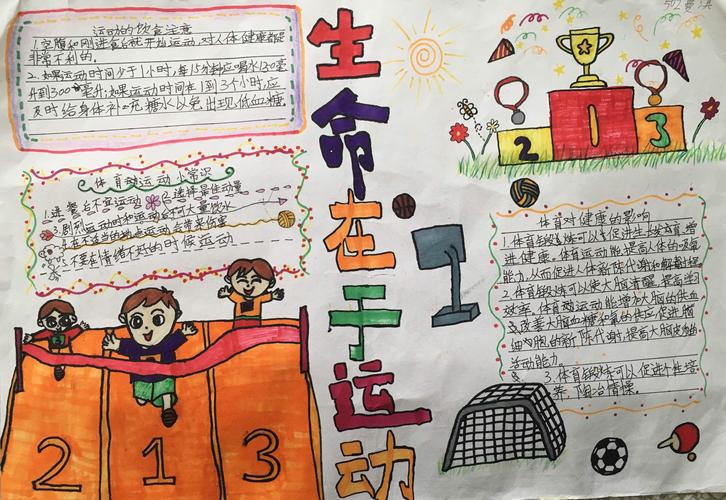 生命在于运动
运动的饮食注意
1.空腹和刚进食后就开始运动,对人体健康都是
非常不利的。
2.如果运动时间少于1小时,每15分钟应喝水120毫
升到300毫升;如果运动时间在1到3个小时,应
及时给身体补充糖水以免出现低血糖
体育运动小常识
1.进餐后不宜运动 2.选择最佳动量
3.剧烈运动时和运动后不可大量饮水
4.在不适当的地点运动会带来伤害
5.不要在情绪不好的时候运动
2 1 3
502
2 1 3
体育对健康的影响
1.体育锻炼可以促进生长发育,增
进健康。体育运动能提高人体的吸氧
能力,从而促进人体新陈代谢和解毒过程
2.体育锻炼可以使大脑清醒,提高学习
效率。体育运动能增加大脑的供血
改善大脑血糖和氧的供应,促进脑
细胞的新陈代谢,提高大脑皮层的
活动能力
3.体育锻炼可以促进个性培
养,陶冶情操。